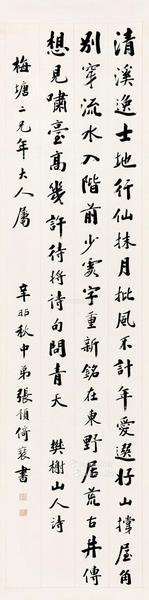 清溪逸士地行仙抹月批風不計年愛選好山撐屋角
別穿流水入階前少霞字重新銘在東野居荒古井傳
想見嘯臺高幾許待將詩句問青天 樊榭山人詩
梅塘二兄年大人屬 辛卯秋中弟張預倚裝書